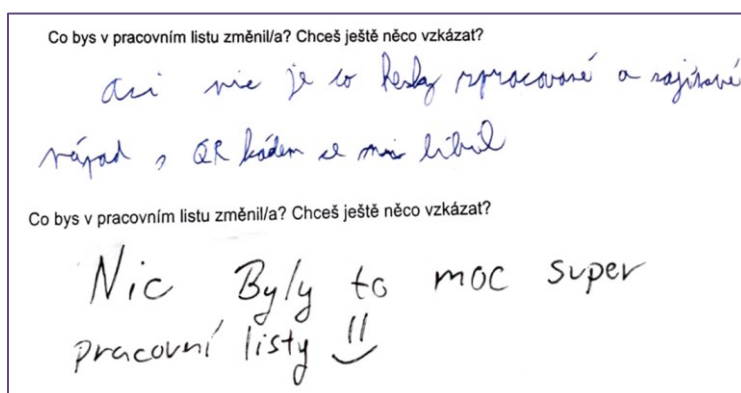 Co bys v pracovním listu změnil/a? Chceš ještě něco vzkázat?
asi nic je to hezky zpracované a zajímavé
nápad s QR kódem se mi líbil
Co bys v pracovním listu změnil/a? Chceš ještě něco vzkázat?
Nic Byly to moc super
pracovní listy